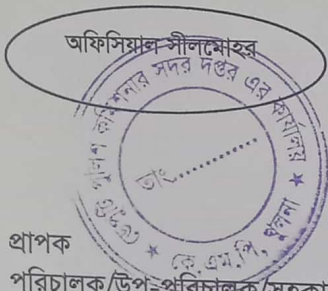 অফিসিয়াল সীলমোহর
ডেপুটি পুলিশ কমিশনার সদর দপ্তর এর কার্যালয়
তাং..............
★ কে, এম, পি, খুলনা ★
প্রাপক
পরিচালক/উপ-পরিচালক/সহকা